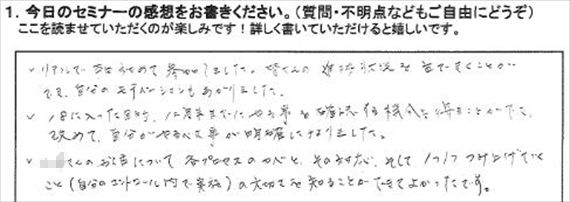 1. 今日のセミナーの感想をお書きください。（質問・不明点などもご自由にどうぞ）
ここを読ませていただくのが楽しみです！詳しく書いていただけると嬉しいです。
✓リアルでは初めて参加しました。皆さんの進捗状況を聞くことが
でき、自分のモチベーションもあがりました。
✓ に入った目的、 までにやる事を確認する機会を得ることができ、
改めて、自分がやるべき事が明確になりました。
✓ さんのお話について 各プロセスのカベと、その対応、そして1つ1つつみ上げていく
こと（自分のコントロール内で実施）の大切さを知ることができてよかったです。